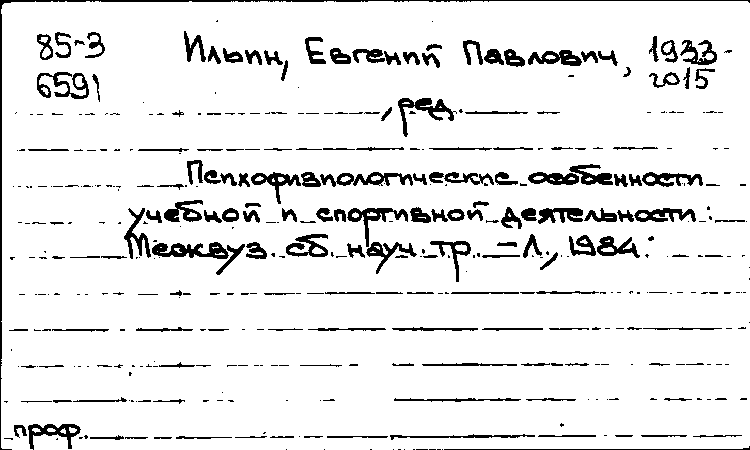 85-3 Ильин, Евгений Павлович, 1933-
6591 2015
, ред.
Психофизиологические особенности
учебной и спортивной деятельности:
Межвуз. сб. науч. тр. – Л., 1984.
проф.